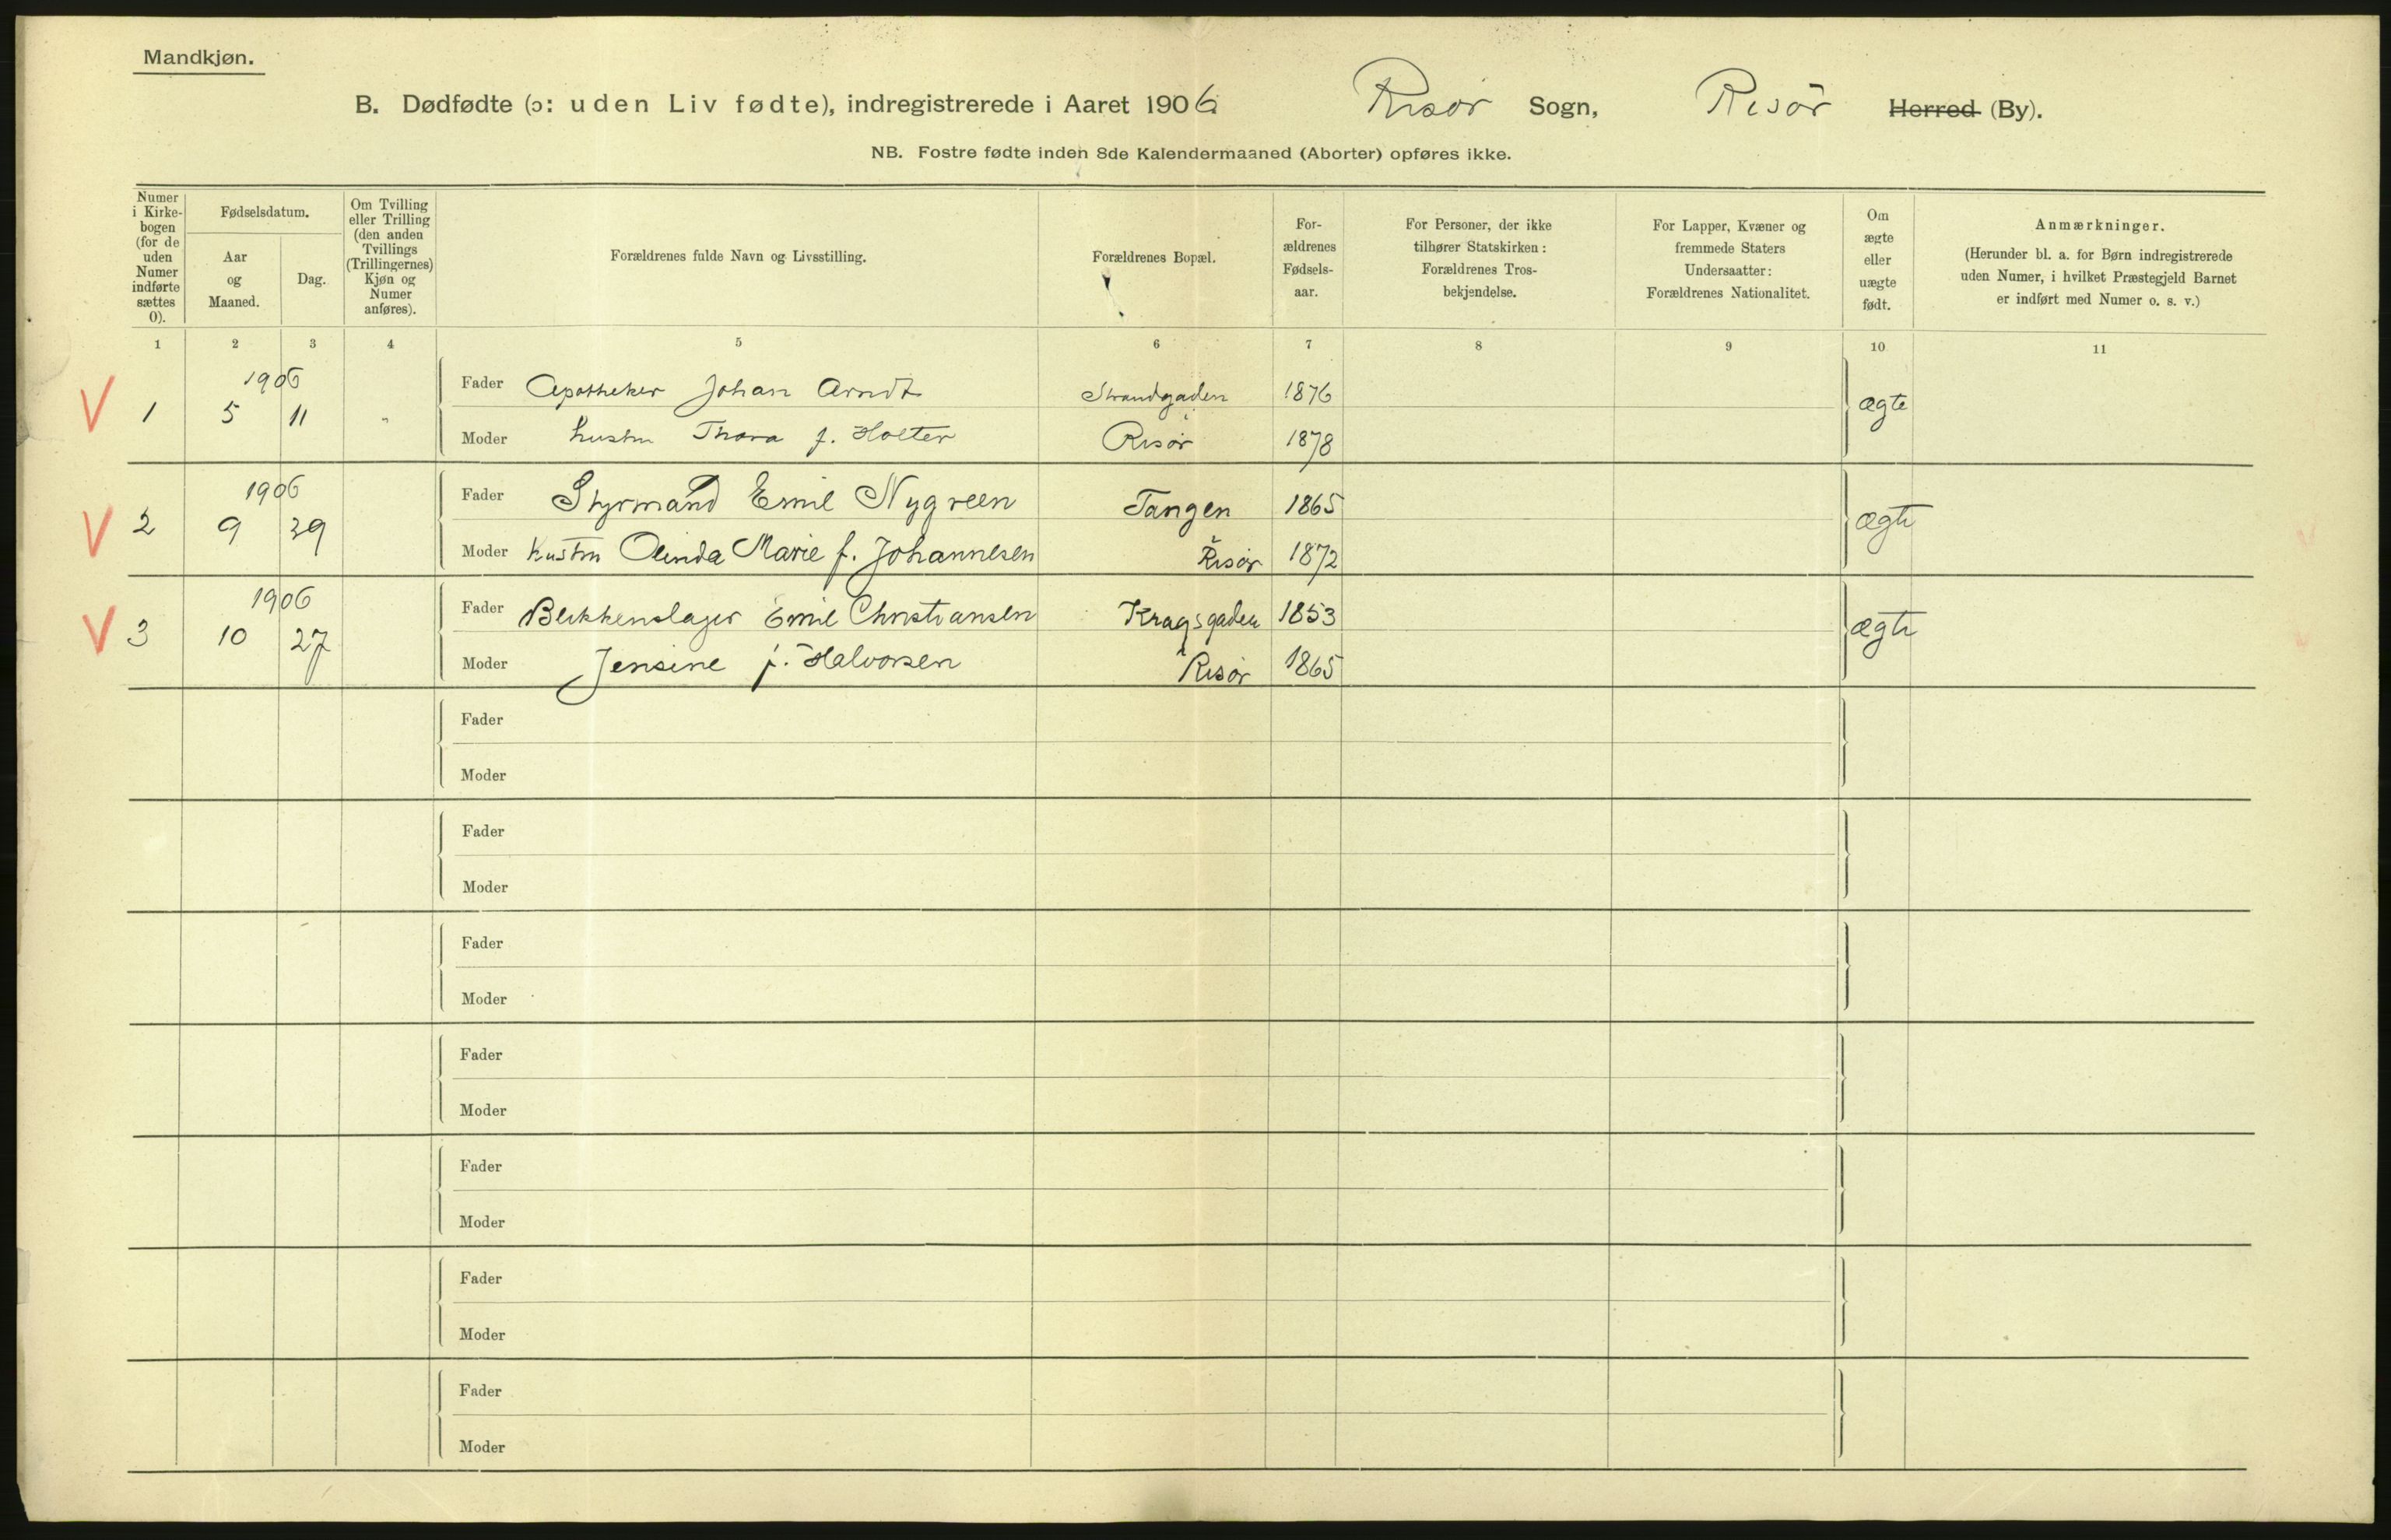 Mandkjøn.
B. Dødfødte (ɔ: uden Liv fødte), indregistrerede i Aaret 1906 Risør Sogn, Risør Herred (By).
NB. Fostre fødte inden 8de Kalendermaaned (Aborter) opføres ikke.
Numer i Kirke-bogen (for de uden Numer indførte sættes 0).
Fødselsdatum.
Aar og Maaned.
Dag.
Om Tvilling eller Trilling (den anden Tvillings (Trillingernes) Kjøn og Numer anføres).
Forældrenes fulde Navn og Livsstilling.
Forældrenes Bopæl.
For-ældrenes Fødsels-aar.
For Personer, der ikke tilhører Statskirken: Forældrenes Tros-bekjendelse.
For Lapper, Kvæner og fremmede Staters Undersaatter: Forældrenes Nationalitet.
Om ægte eller uægte født.
Anmærkninger.
(Herunder bl. a. for Børn indregistrerede uden Numer, i hvilket Præstegjeld Barnet er indført med Numer o. s. v.)
1 2 3 4 5 6 7 8 9 10 11
1906
V 1 5 11 „ Fader Apotheker Johan Arndt Strandgaden 1876 ægte
Moder hustru Thora f. Holter Risør 1878
1906
V 2 9 29 Fader Styrmand Emil Nygreen Tangen 1865 ægte
Moder hustru Olinda Marie f. Johannesen Risør 1872
1906
V 3 10 27 Fader Blikkenslager Emil Christiansen Kragsgaden 1853 ægte
Moder Jensine f. Halvorsen Risør 1865
Fader
Moder
Fader
Moder
Fader
Moder
Fader
Moder
Fader
Moder
Fader
Moder
Fader
Moder